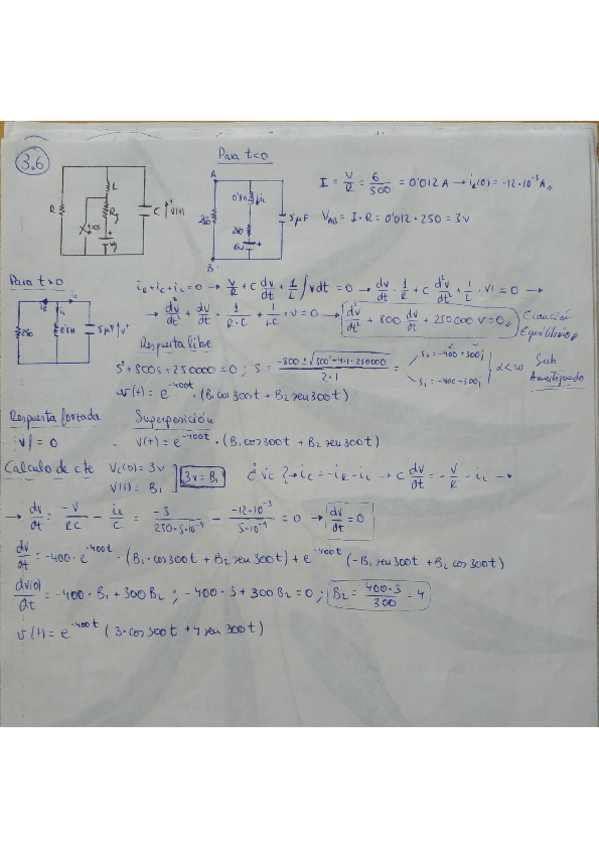 3.6
Para t<0
R L Rg C v(t) t=0 Vg
A 250 0'8H iL 250 6V + 5μF B
I = V/R = 6/500 = 0'012 A → iL(0) = -12·10^-3 A
V_AB = I·R = 0'012 · 250 = 3v
Para t>0
iR + iC + iL = 0 → V/R + C dv/dt + 1/L ∫vdt = 0 → dv/dt · 1/R + C d²v/dt² + 1/L · v1 = 0 →
250 0'8H 5μF v
→ d²v/dt² + dv/dt · 1/(R·C) + 1/(LC) · v = 0 → d²v/dt² + 800 dv/dt + 250000 v = 0 Ecuación Equilibrio
Respuesta libre
s² + 800s + 250000 = 0 ; s = (-800 ± √(800² - 4·1·250000))/(2·1) = s1 = -400 + 300j
s2 = -400 - 300j α<ω Sub Amortiguado
v(t) = e^-400t · (B1 cos 300t + B2 sen 300t)
Respuesta forzada Superposición
vf = 0 v(t) = e^-400t · (B1 cos 300t + B2 sen 300t)
Calculo de cte Vc(0) = 3v
V(t) = B1 3v = B1 ¿ vc } → ic = -iR - iL → C dv/dt = -V/R - iL →
→ dv/dt = -V/RC - iL/C = -3/(250·5·10^-4) - (-12·10^-3)/(5·10^-4) = 0 → dv/dt = 0
dv/dt = -400·e^-400t · (B1·cos 300t + B2 sen 300t) + e^-400t (-B1 sen 300t + B2 cos 300t)
dv(0)/dt = -400·B1 + 300 B2 ; -400·3 + 300 B2 = 0 ; B2 = 400·3/300 = 4
v(t) = e^-400t (3·cos 300t + 4 sen 300t)